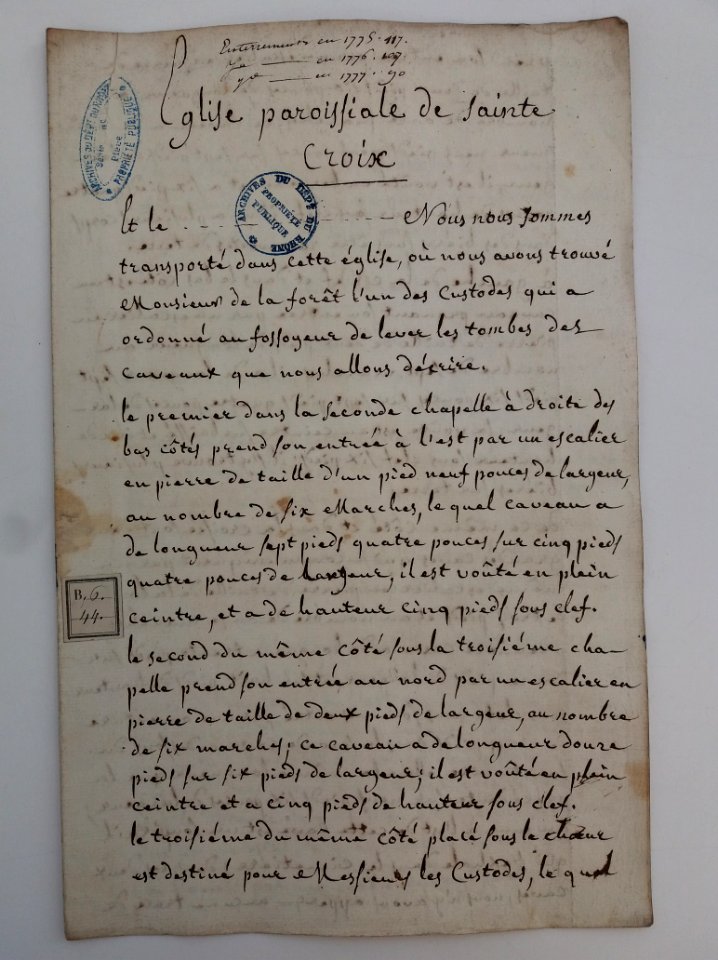 Enterrements en 1775. 117.
en 1776. 107.
en 1777. 90
Eglise paroissiale de Sainte
Croix
ARCHIVES DU DÉPT DU RHÔNE
PROPRIÉTÉ PUBLIQUE
ARCHIVES DU DÉPT DU RHÔNE
PROPRIÉTÉ
PUBLIQUE
Et le - - - - - - - - - - Nous nous sommes
transporté dans cette église, où nous avons trouvé
Monsieur de la forêt l'un des Custodes qui a
ordonné au fossoyeur de lever les tombes des
caveaux que nous allons décrire.
le premier dans la seconde chapelle à droite des
bas côtés prend son entrée à l'est par un escalier
en pierre de taille d'un pied neuf pouces de largeur,
au nombre de six Marches, le quel caveau a
de longueur sept pieds quatre pouces sur cinq pieds
quatre pouces de largeur; il est voûté en plein
ceintre, et a de hauteur cinq pieds sous clef.
B. 6.
44.
le second du même côté sous la troisiéme cha-
pelle prend son entrée au nord par un escalier en
pierre de taille de deux pieds de largeur, au nombre
de six marches; ce caveau a de longueur douze
pieds sur six pieds de largeur; il est voûté en plein
ceintre et a cinq pieds de hauteur sous clef.
le troisiéme du même côté placé sous le chœur
est destiné pour Messieurs les Custodes, le quel